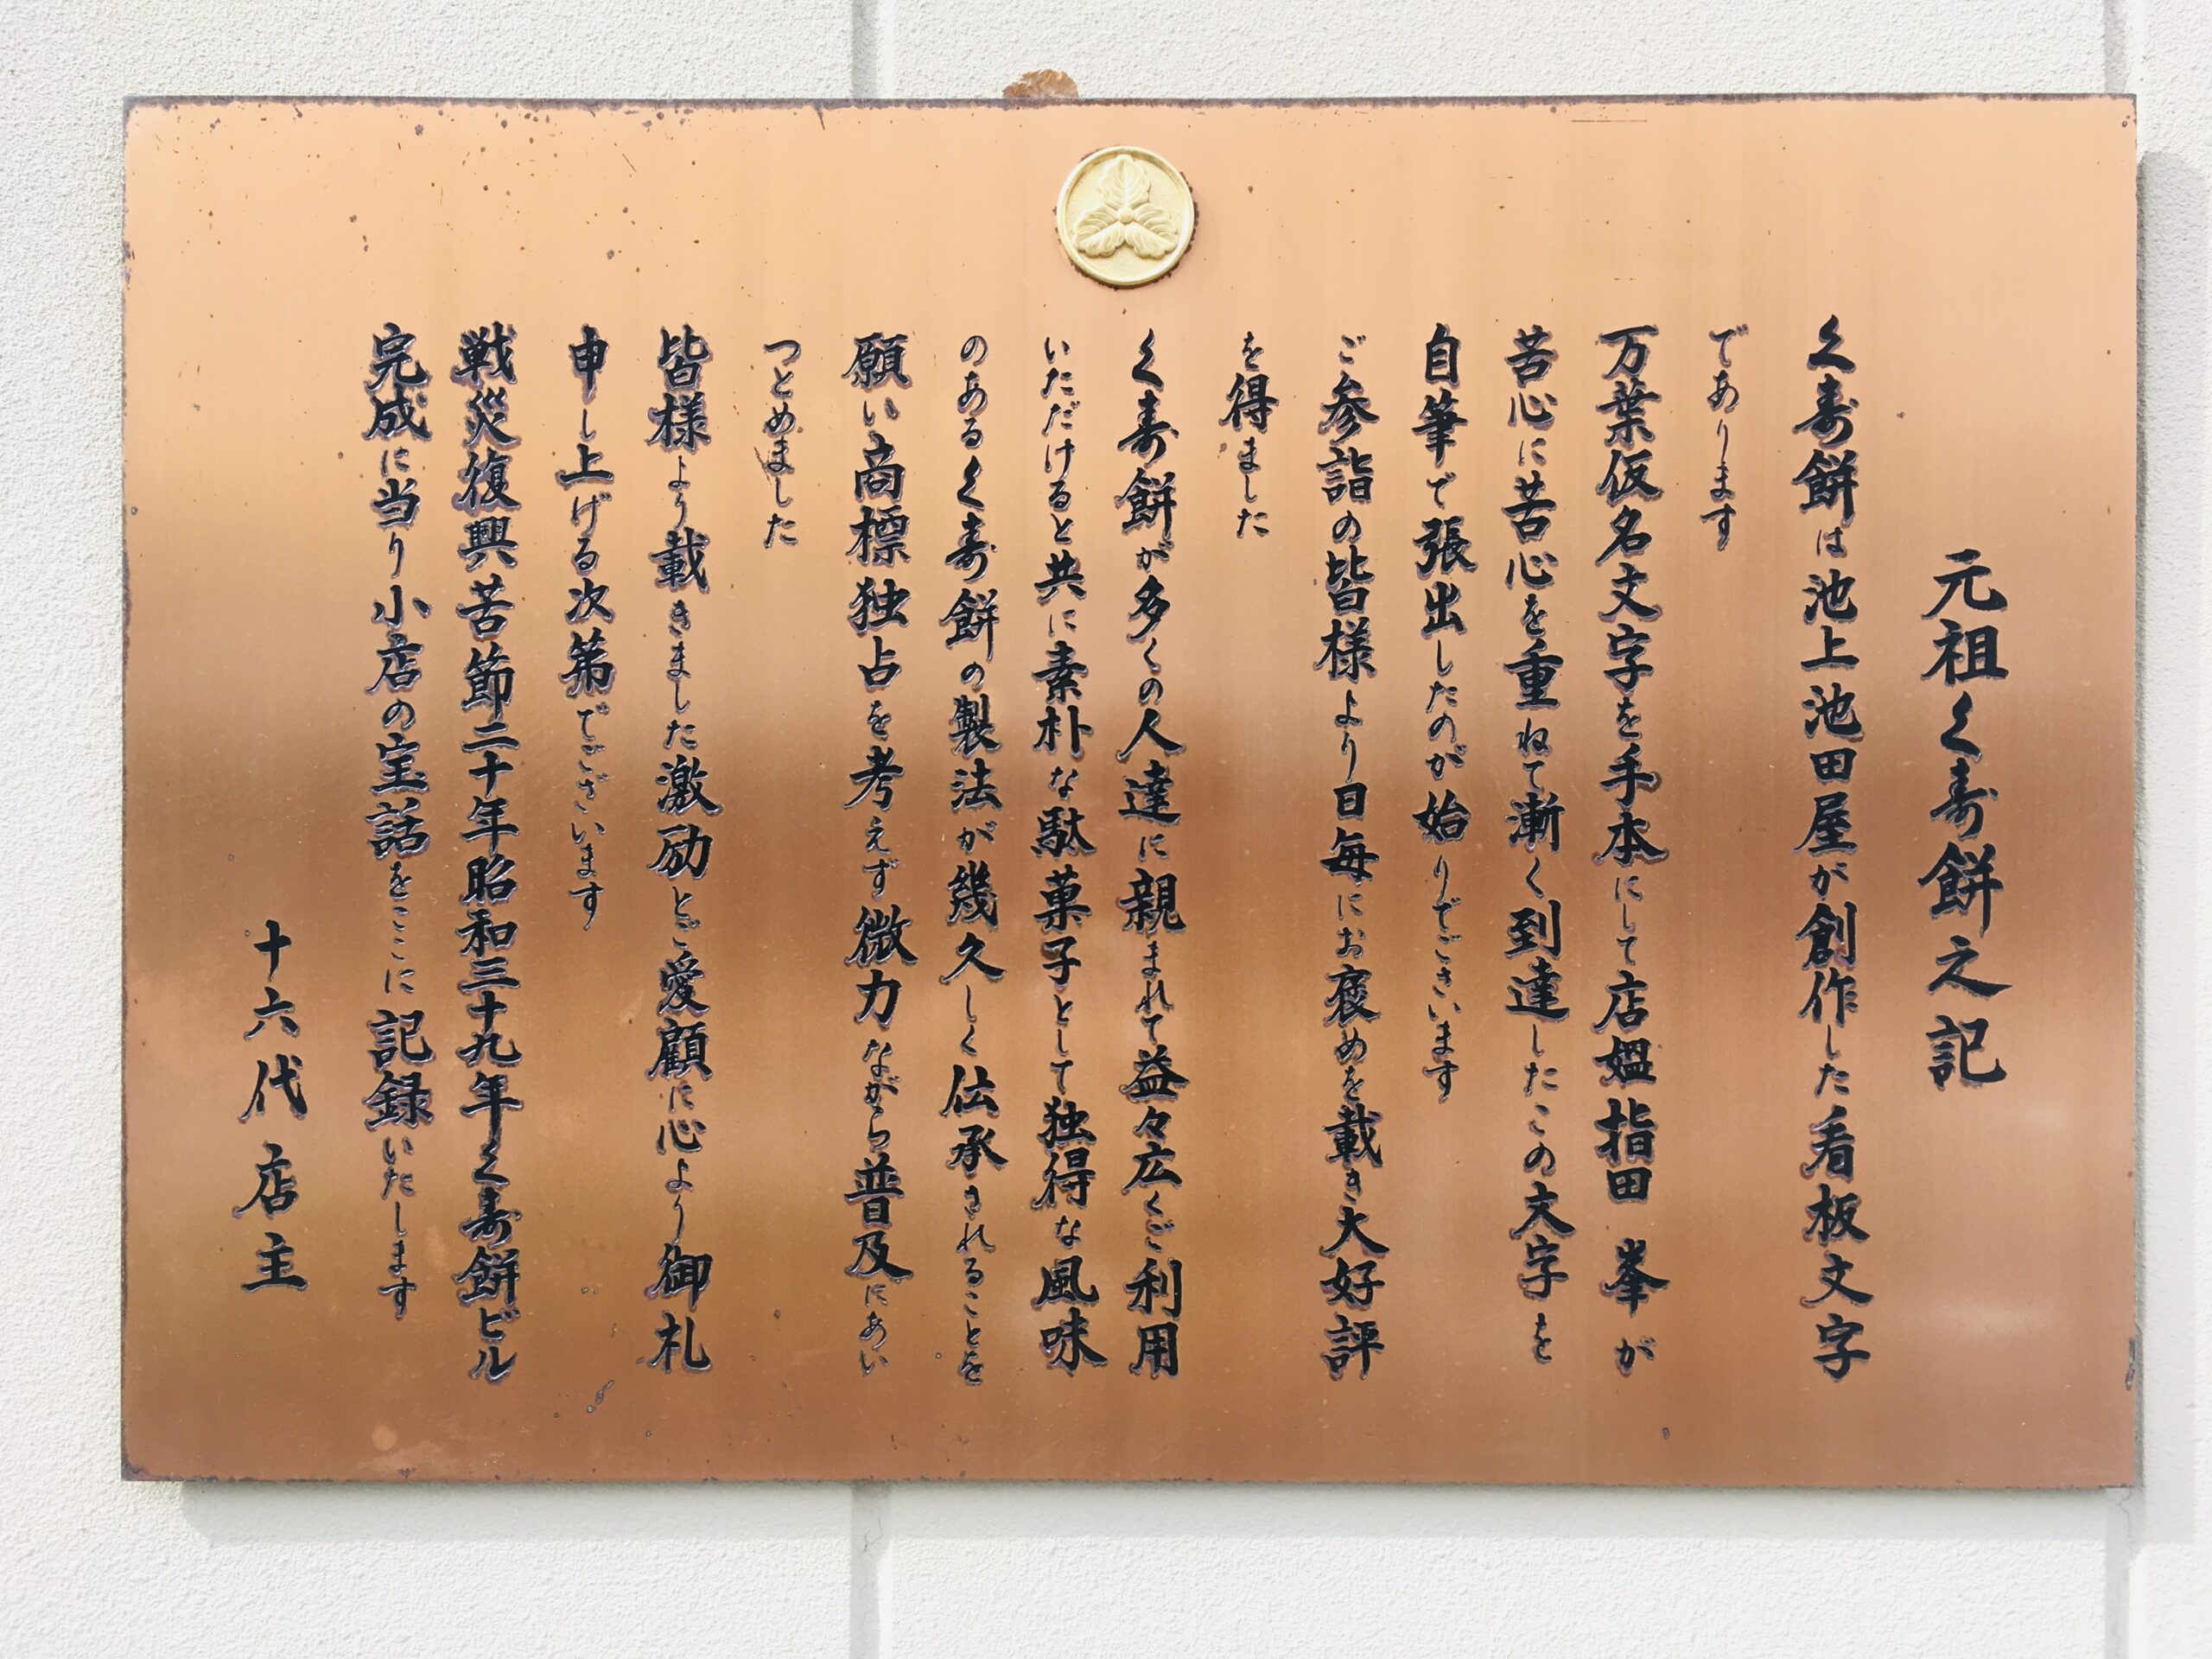 元祖く寿餅之記
く寿餅は池上池田屋が創作した看板文字
であります
万葉仮名文字を手本にして店媼指田 峯が
苦心に苦心を重ねて漸く到達したこの文字を
自筆で張出したのが始りでございます
ご参詣の皆様より日毎にお褒めを載き大好評
を得ました
く寿餅が多くの人達に親まれて益々広くご利用
いただけると共に素朴な駄菓子として独得な風味
のあるく寿餅の製法が幾久しく伝承されることを
願い商標独占を考えず微力ながら普及にあい
つとめました
皆様より載きました激励とご愛顧に心より御礼
申し上げる次第でございます
戦災復興苦節二十年昭和三十九年く寿餅ビル
完成に当り小店の宝話をここに記録いたします
十六代店主